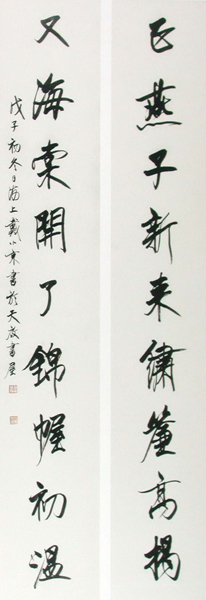 正燕子新来繡簾高揭
又海棠開了錦幄初溫
戊子初冬日海上戴小京書於天放書屋